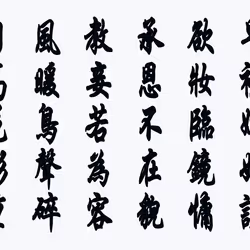 欲妝臨鏡慵
承恩不在貌
教妾若為容
風暖鳥聲碎